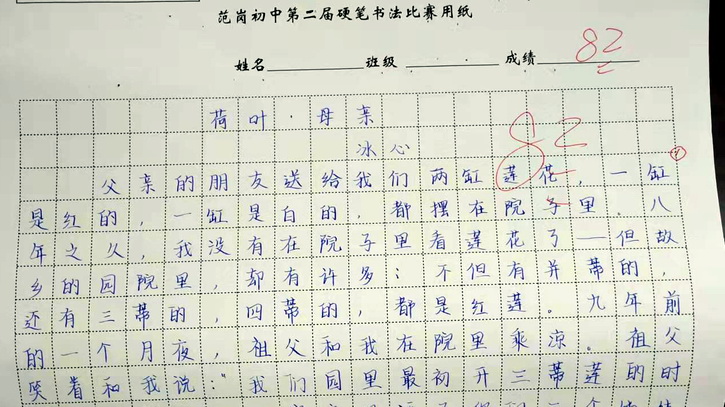 范岗初中第二届硬笔书法比赛用纸
姓名 班级 成绩 82
荷叶·母亲
82
冰心
父亲的朋友送给我们两缸莲花,一缸
是红的,一缸是白的,都摆在院子里。八
年之久,我没有在院子里看莲花了——但故
乡的园院里,却有许多;不但有并蒂的,
还有三蒂的,四蒂的,都是红莲。九年前
的一个月夜,祖父和我在院里乘凉。祖父
笑着和我说:“我们园里最初开三蒂莲的时